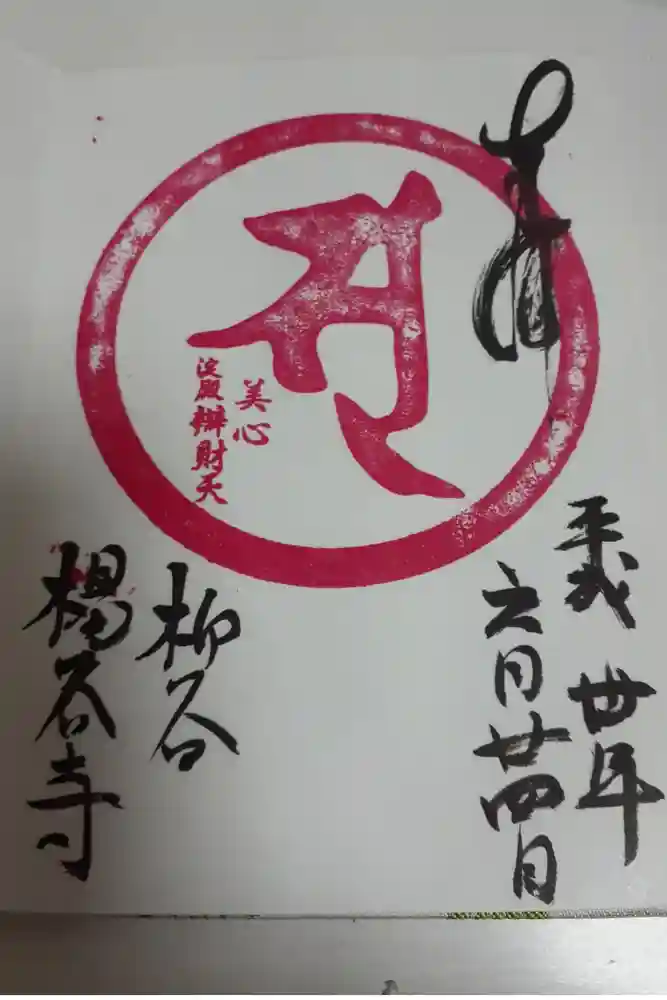 奉拝
平成廿年
六月廿四日
美心
淀殿辨財天
柳谷
楊谷寺